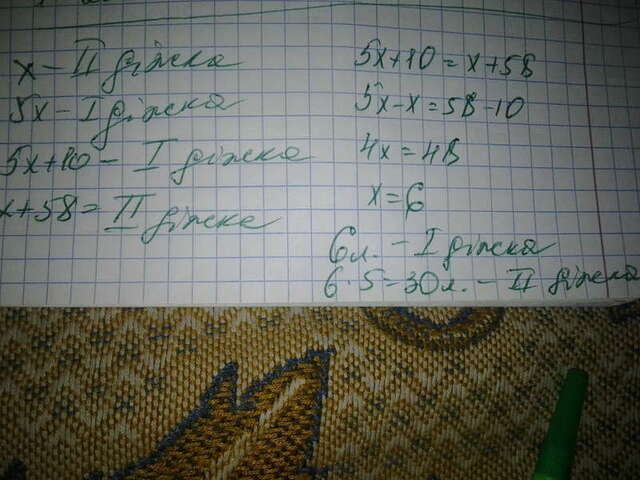 x – II діжка
5x – I діжка
5x+10 – I діжка
x+58 = II діжка
5x+10 = x+58
5x–x = 58–10
4x = 48
x = 6
6л. – I діжка
6·5=30л. – II діжка